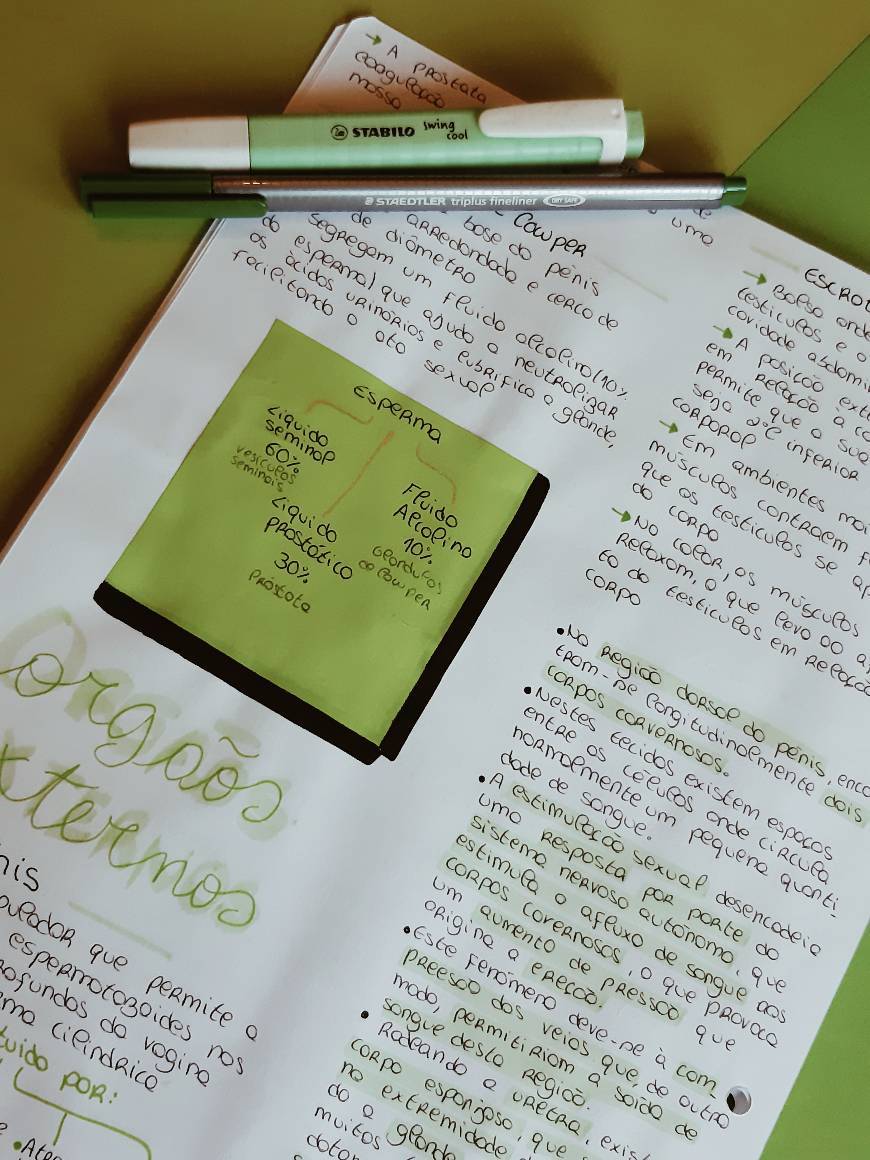 → A próstata
coagulação
STABILO swing cool
STAEDTLER triplus fineliner DRY SAFE
Cowper
base do pénis
arredondada e cerca de
de diâmetro
segregam um fluido alcalino (10%
do esperma) que ajuda a neutralizar
os ácidos urinários e lubrifica a glande,
facilitando o ato sexual
uma
Esperma
Líquido
seminal
60%
vesículas
seminais
Líquido
prostático
30%
próstata
Fluido
Alcalino
10%
Glândulas
de Cowper
orgãos
xternos
nis
pulador que permite a
espermatozoides nos
rofundos da vagina
rma cilíndrica
tuído por:
ESCROT
→ Bolsa onde
testículos e o
cavidade abdomin
→ A posição exte
em relação à ca
permite que a sua
seja 2ºC inferior
corporal
→ Em ambientes mai
músculos contraem f
que os testículos se ap
do corpo
→ No calor, os músculos
relaxam, o que leva ao a
to do testículos em relação
corpo
• Na região dorsal do pénis, enco
tram-se longitudinalmente dois
corpos carvernosos.
• Nestes tecidos existem espaços
entre as células onde circula
normalmente um pequena quanti_
dade de sangue.
• A estimulação sexual desencadeia
uma resposta por parte do
sistema nervoso autónomo, que
estimula o afluxo de sangue aos
corpos cavernosos, o que provoca
um aumento de pressão que
origina a ereção.
• Este fenómeno deve-se à com_
preesão dos veias que, de outro
modo, permitiriam a saída de
sangue desta região.
• Rodeando a uretra, exis
corpo esponjoso, que s
na extremidade
do a glande
muitos